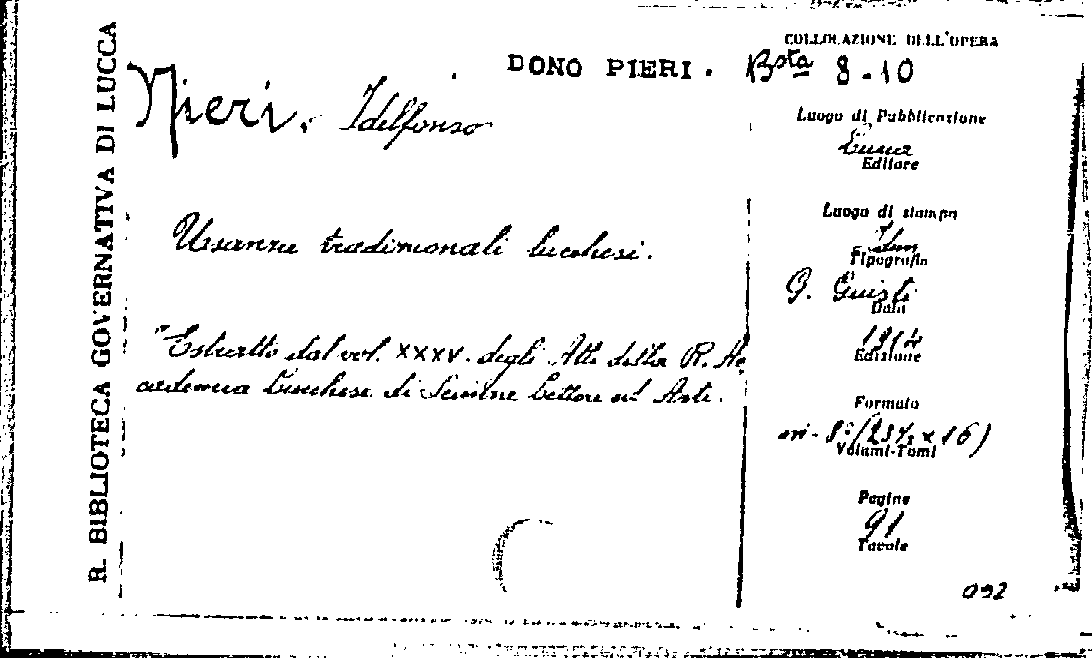 R. BIBLIOTECA GOVERNATIVA DI LUCCA
Nieri. Idelfonso
Usanze tradizionali lucchesi.
"Estratto dal vol. XXXV. degli Atti della R. Ac
cademia Lucchese di Scienze Lettere ed Arti.
DONO PIERI.
COLLOCAZIONE DELL'OPERA
Bsta 8-10
Luogo di Pubblicazione
Lucca
Editore
Luogo di stampa
Idem
Tipografia
G. Giusti
Data
Edizione
Formato
in-8° (23½ x 16)
Volumi-Tomi
Pagine
91
Tavole
092